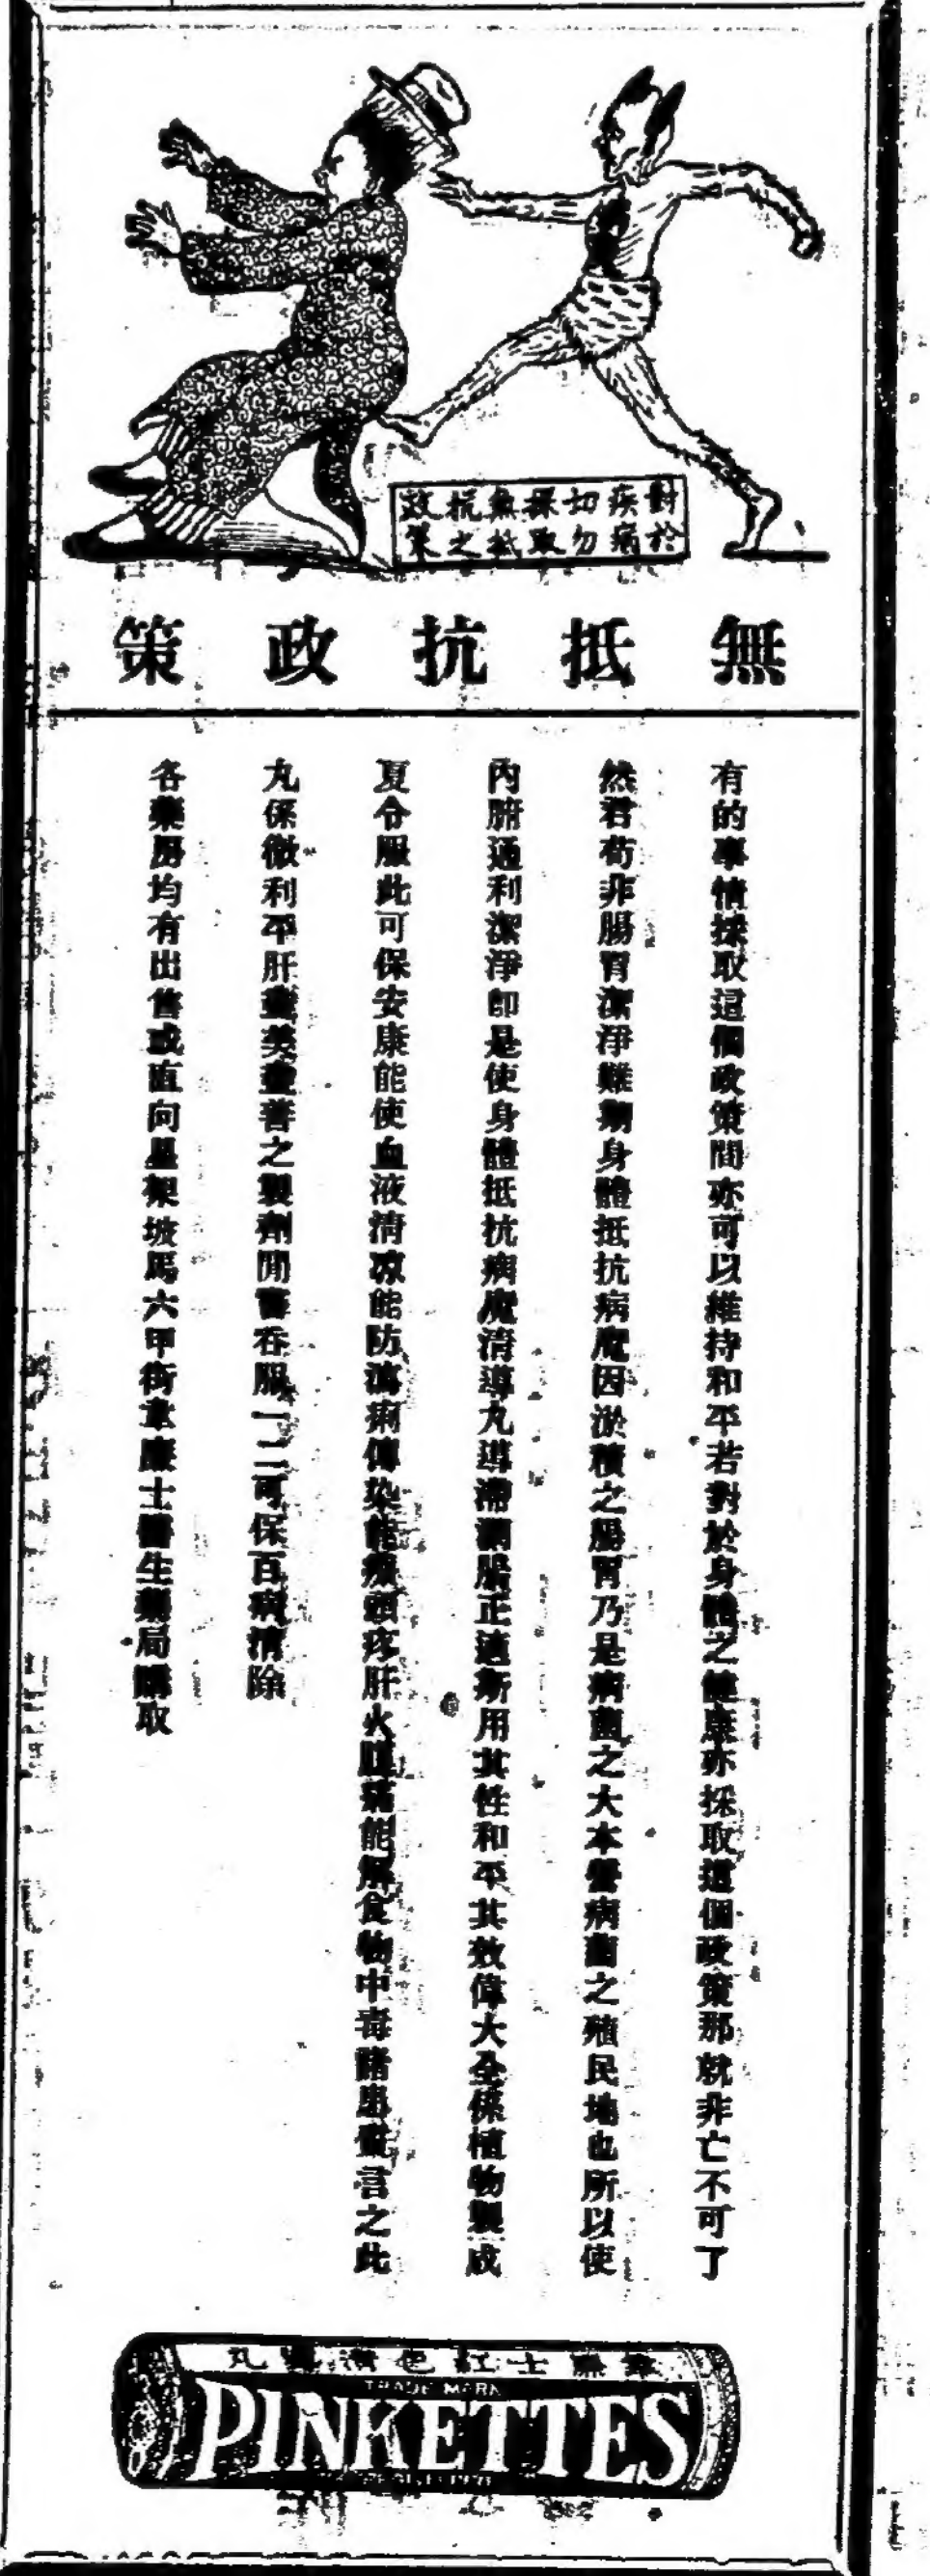 對於
疾病
切勿
採取
無抵
抗之
政策
無抵抗政策
有的事情採取這個政策間亦可以維持和平若對於身體之健康亦採取這個政策那就非亡不可了
然君苟非腸胃潔淨難期身體抵抗病魔因淤積之腸胃乃是病菌之大本營病菌之殖民地也所以使
內腑通利潔淨即是使身體抵抗病魔清導丸導滯潤腸正適斯用其性和平其效偉大全係植物製成
夏令服此可保安康能使血液清凉能防瀉痢傳染能療頭疼肝火腹痛能解食物中毒諸患質言之此
丸係微利平肝盡美盡善之製劑間嘗吞服一二可保百病消除
各藥房均有出售或直向星架坡馬六甲街韋廉士醫生藥局購取
韋廉士紅色清導丸
TRADE MARK
PINKETTES